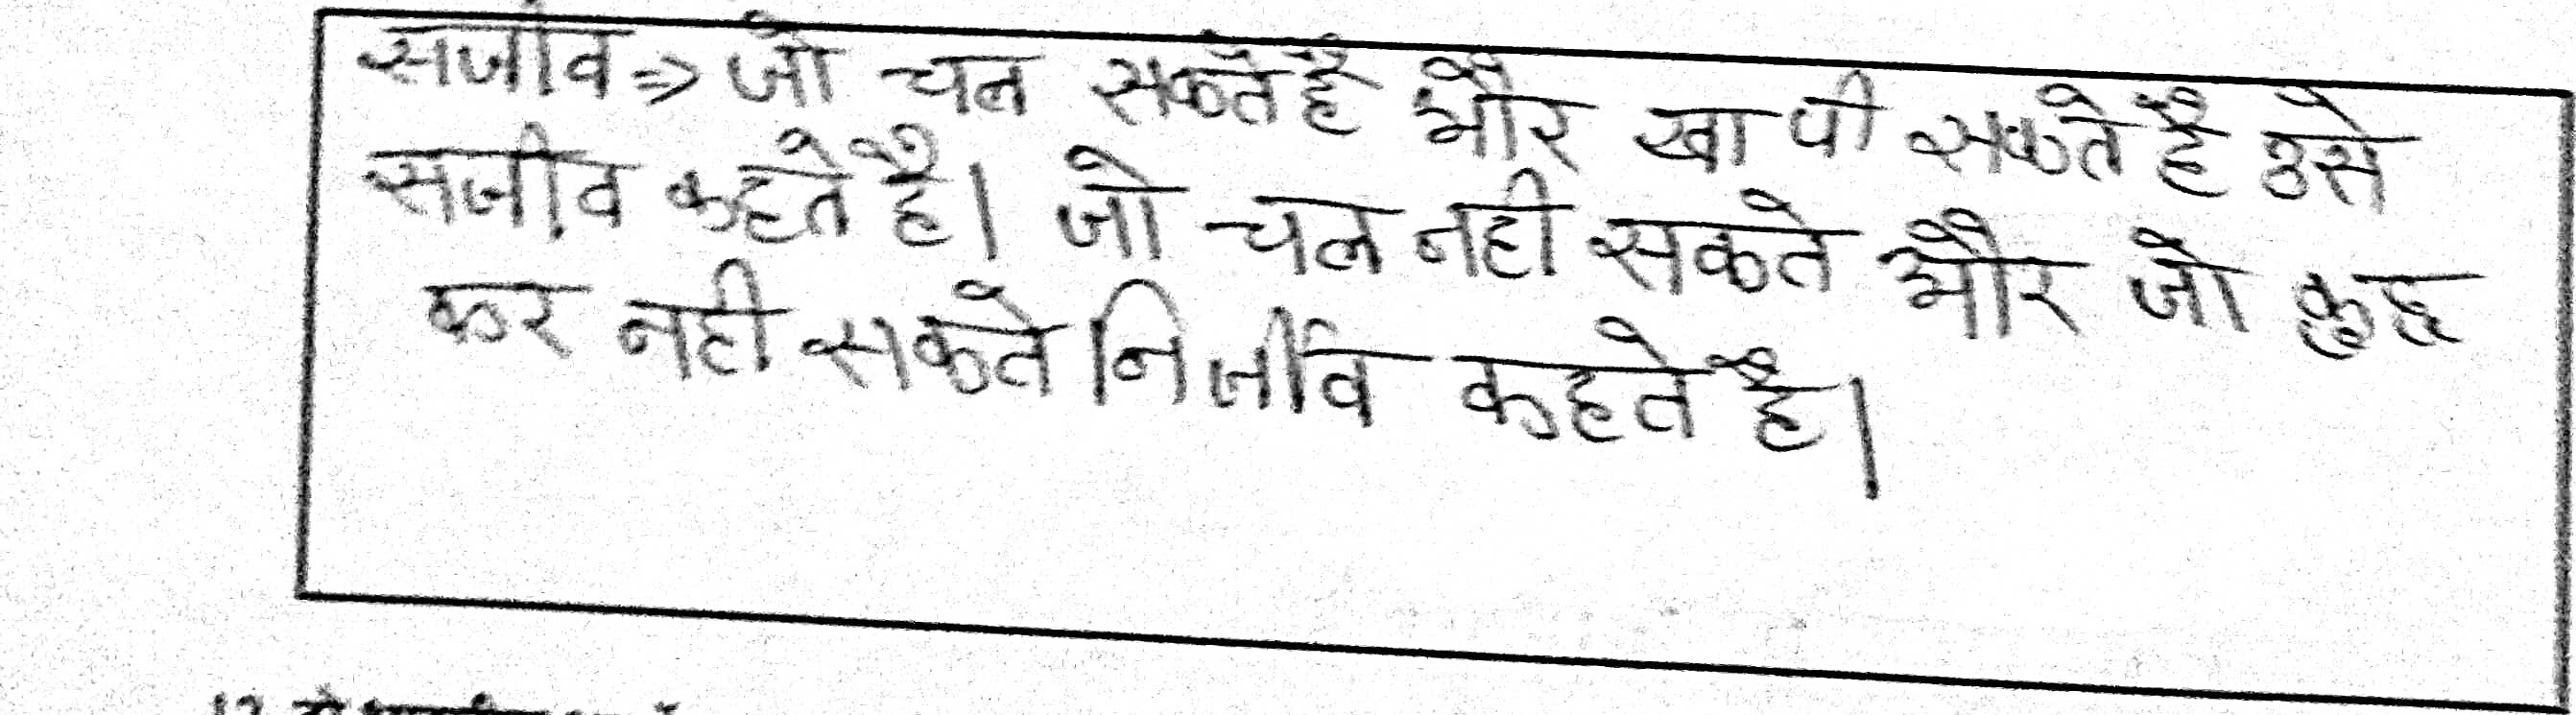 सजीव => जो चल सकते है और खा पी सकते है उसे
सजीव कहते है। जो चल नही सकते और जो कुछ
कर नही सकते निर्जीव कहते है।